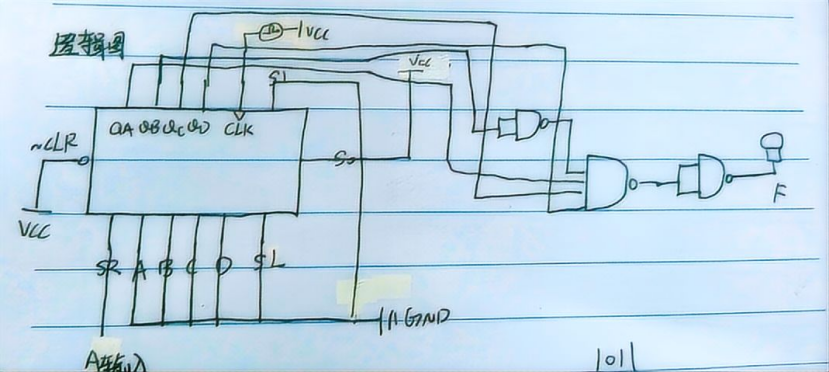 逻辑图
VCC
S1
Vcc
QA QB QC QD CLK
~CLR
S0
F
VCC
SR A B C D SL
GND
A输入
1011